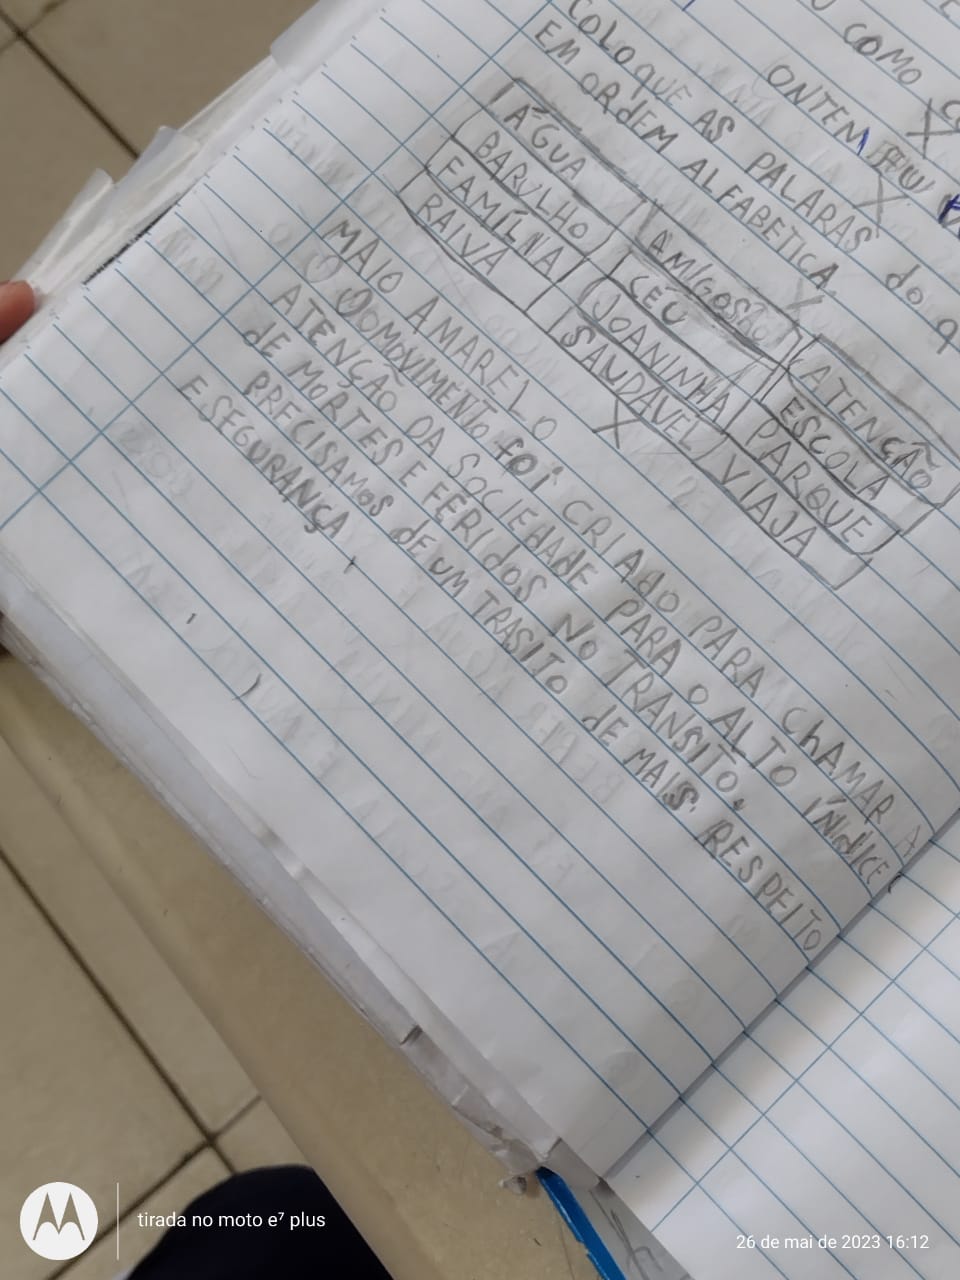 COMO
ONTEM
COLOQUE AS PALARAS do q
EM ORdEM ALFABETICA
ÁGUA AMIGOSÃO ATENÇÃO
BARULHO CÉU ESCOLA
FAMÍLNA JOANINHA PARQUE
RAIVA SAUDÁVEL VIAJA
MAIO AMARELO
O MOVIMENTO foi CRIADO PARA ChAMAR A
ATENÇÃO DA SOCIEDADE PARA O ALTO ÍNdICE
dE MORTES E FERIdOS NO TRANSITO.
PRECISAMOS dE UM TRASITO dE MAIS RESPEITO
E SEGURANÇA
tirada no moto e⁷ plus
26 de mai de 2023 16:12